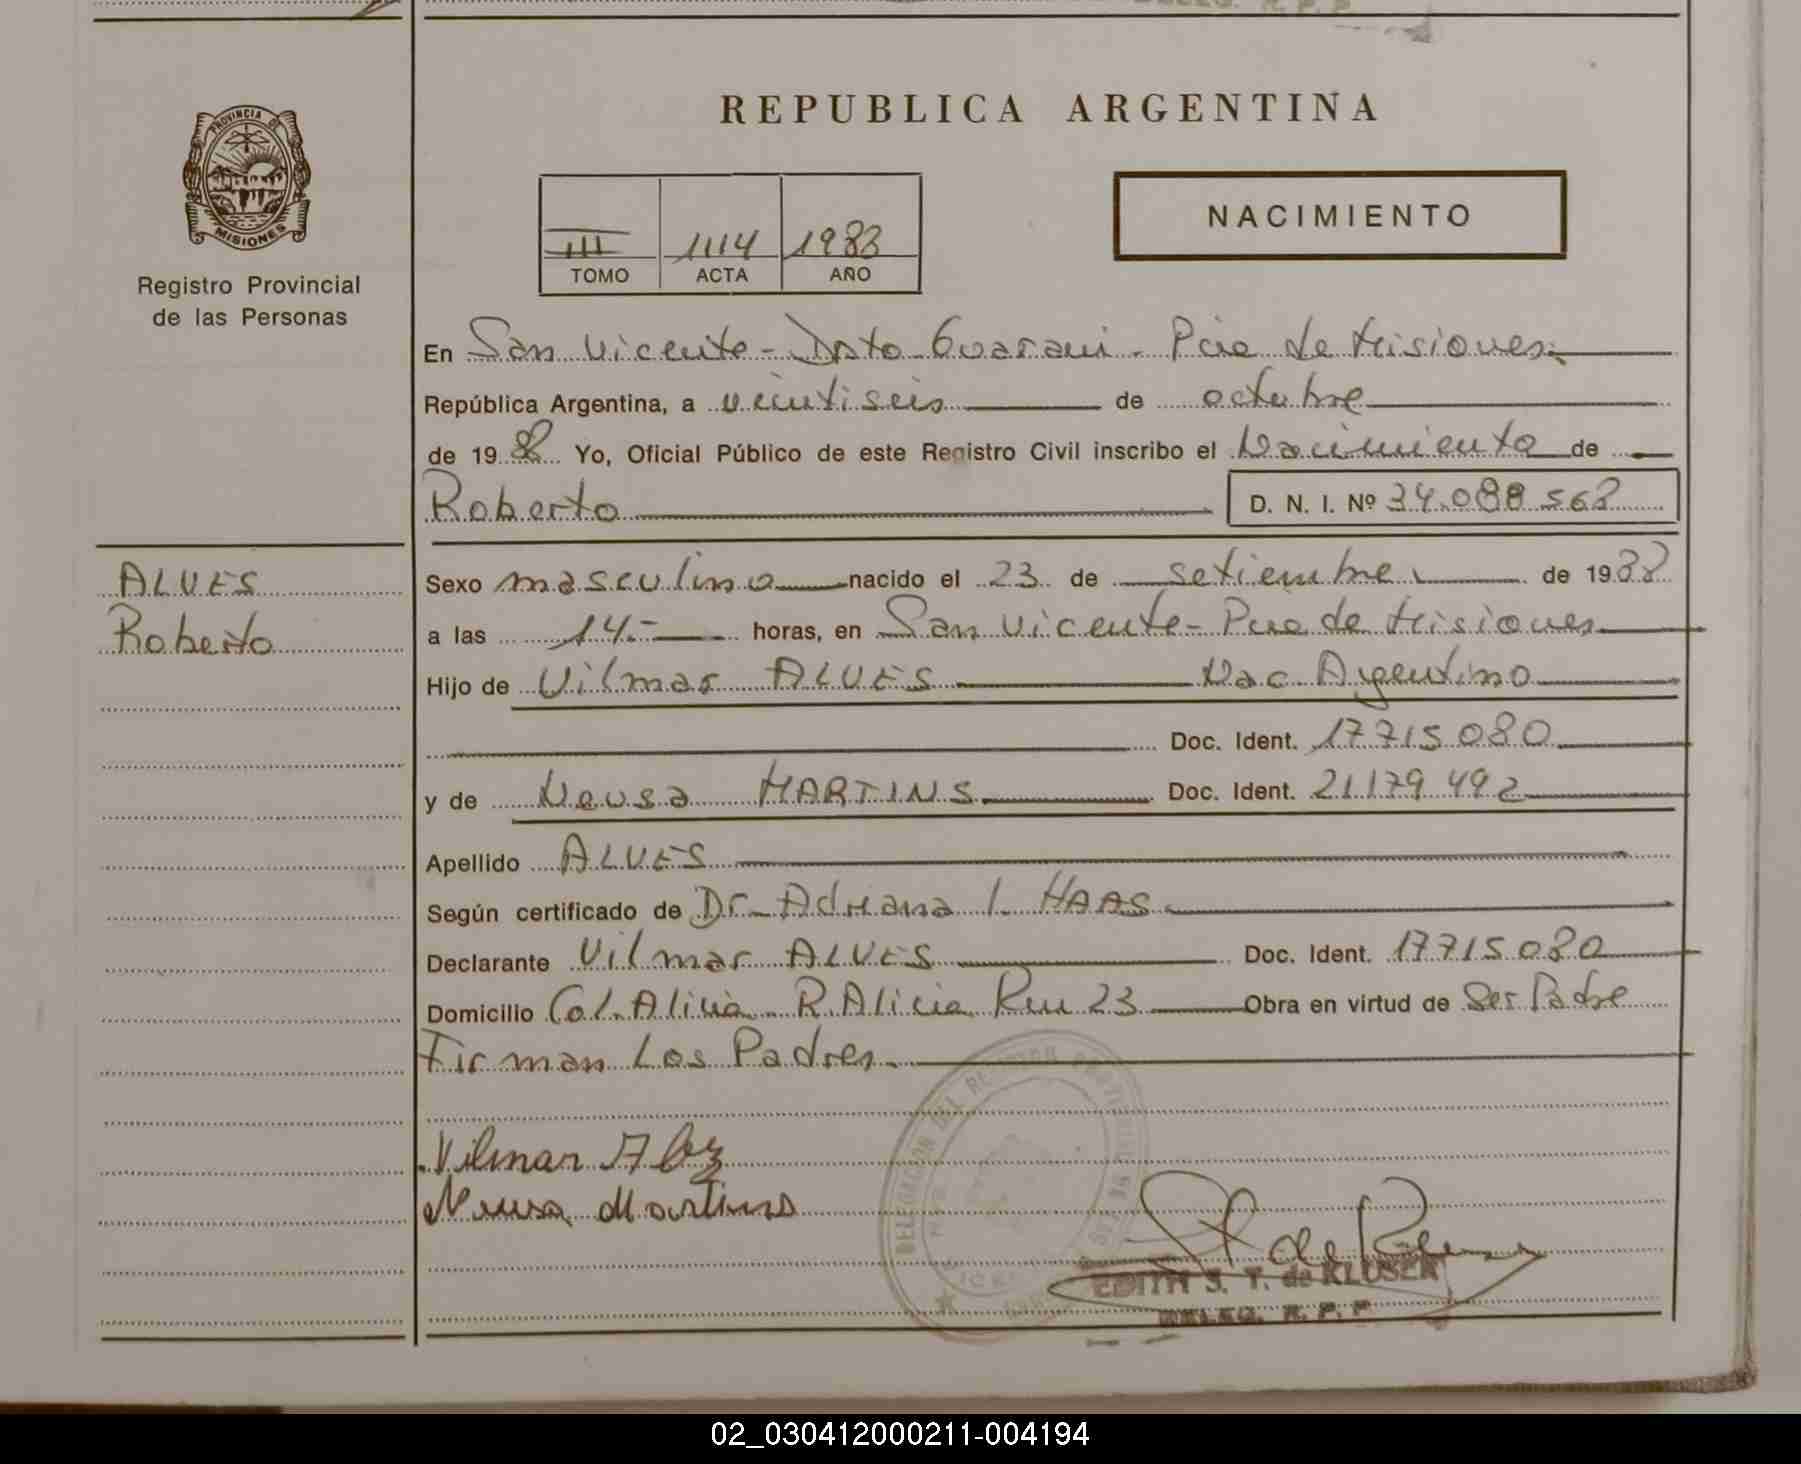 PROVINCIA DE
MISIONES
Registro Provincial
de las Personas
REPUBLICA ARGENTINA
III 1114 1988
TOMO ACTA AÑO
NACIMIENTO
En San Vicente - Dpto Guarani - Pcia de Misiones
República Argentina, a veintiseis de octubre
de 19 88 Yo, Oficial Público de este Registro Civil inscribo el Nacimiento de
Roberto D. N. I. Nº 34.088.568
ALVES
Roberto
Sexo masculino nacido el 23 de setiembre de 1988
a las 14.- horas, en San Vicente - Pcia de Misiones
Hijo de Vilmar ALVES Nac Argentino
Doc. Ident. 17715080
y de Neusa MARTINS Doc. Ident. 21179492
Apellido ALVES
Según certificado de Dr- Adriana I. HAAS
Declarante Vilmar ALVES Doc. Ident. 17715080
Domicilio Col. Alicia R. Alicia Km 23 Obra en virtud de Ser Padre
Firman Los Padres
Vilmar
Neusa Martins
EDITH S. T. de KLUSER
DELEG. R. P. P.
02_030412000211-004194